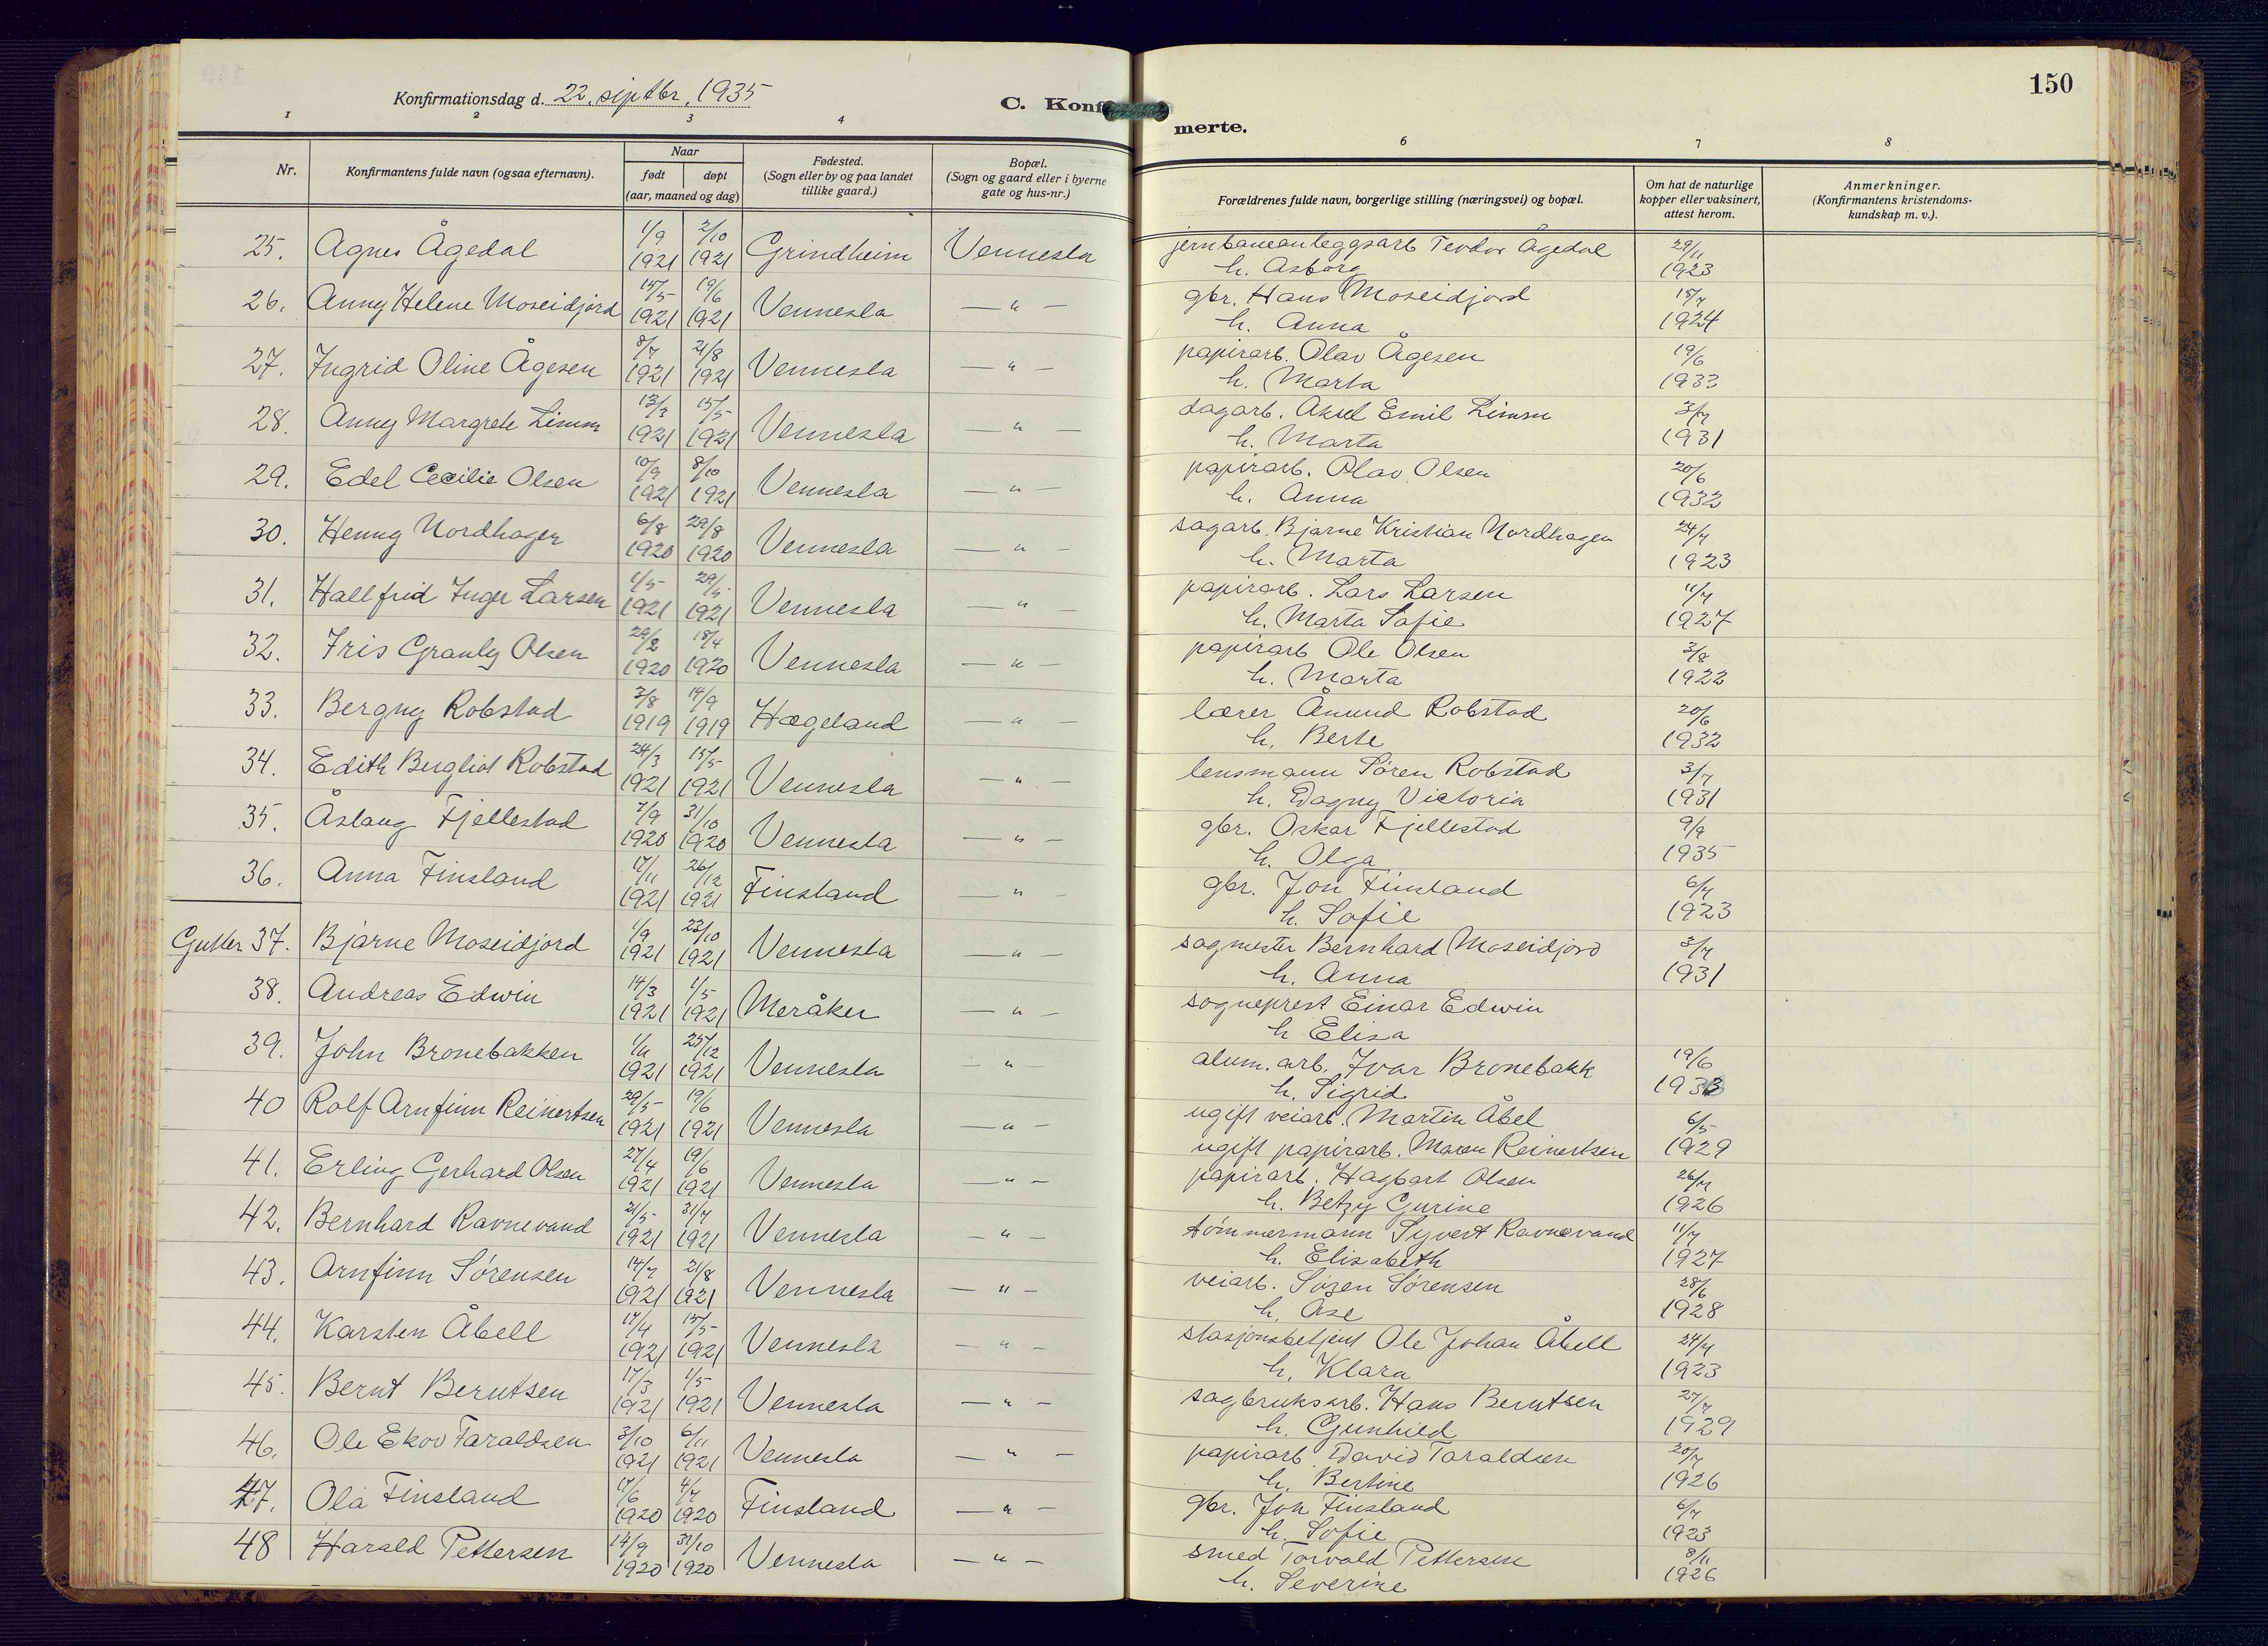 150
Konfirmationsdag d. 22. septbr. 1935
C. Konf merte.
1 2 3 4 6 7 8
Nr.
Konfirmantens fulde navn (ogsaa efternavn).
Naar
født døpt
(aar, maaned og dag)
Fødested.
(Sogn eller by og paa landet
tillike gaard.)
Bopæl.
(Sogn og gaard eller i byerne
gate og hus-nr.)
Forældrenes fulde navn, borgerlige stilling (næringsvei) og bopæl.
Om hat de naturlige
kopper eller vaksinert,
attest herom.
Anmerkninger.
(Konfirmantens kristendoms-
kundskap m. v.).
25. Agnes Ågedal 1/9 1921 2/10 1921 Grindheim Vennesla jernbaneanleggsarb Teodor Ågedal 29/11
h. Asborg 1923
26. Anny Helene Moseidjord 15/5 1921 19/6 1921 Vennesla — " — gbr. Hans Moseidjord 15/7
h. Anna 1924
27. Ingrid Oline Ågesen 8/7 1921 21/8 1921 Vennesla — " — papirarb. Olav Ågesen 19/6
h. Marta 1933
28. Anny Margrete Limm 13/3 1921 15/5 1921 Vennesla — " — dagarb. Aksel Emil Limm 3/7
h. Marta 1931
29. Edel Cecilie Olsen 10/9 1921 8/10 1921 Vennesla — " — papirarb. Olav Olsen 20/6
h. Anna 1932
30. Henny Nordhagen 6/8 1920 29/8 1920 Vennesla — " — sagarb. Bjarne Kristian Nordhagen 24/7
h. Marta 1923
31. Hallfrid Inger Larsen 1/5 1921 29/5 1921 Vennesla — " — papirarb. Lars Larsen 11/7
h. Marta Sofie 1927
32. Iris Granly Olsen 29/2 1920 18/4 1920 Vennesla — " — papirarb Ole Olsen 3/8
h. Marta 1922
33. Bergny Robstad 3/8 1919 14/9 1919 Hægeland — " — lærer Åmund Robstad 20/6
h. Berte 1932
34. Edith Bergliot Robstad 24/3 1921 15/5 1921 Vennesla — " — lensmann Søren Robstad 3/7
h. Dagny Victoria 1931
35. Åslaug Fjellestad 7/9 1920 31/10 1920 Vennesla — " — gbr. Oskar Fjellestad 9/9
h. Olga 1935
36. Anna Finsland 17/11 1921 26/12 1921 Finsland — " — gbr. Jon Finsland 6/7
h. Sofie 1923
Gutter 37. Bjarne Moseidjord 1/9 1921 23/10 1921 Vennesla — " — sagmester Bernhard Moseidjord 3/7
h. Anna 1931
38. Andreas Edwin 14/3 1921 1/5 1921 Meråker — " — sogneprest Einar Edwin
h Elisa
39. John Bronebakken 1/11 1921 25/12 1921 Vennesla — " — alum. arb. Ivar Bronebakk 19/6
h. Sigrid 1933
40 Rolf Arnfinn Reinertsen 29/5 1921 19/6 1921 Vennesla — " — ugift veiarb. Martin Åbel 6/5
ugift papirarb. Maren Reinertsen 1929
41. Erling Gerhard Olsen 27/4 1921 19/6 1921 Vennesla — " — papirarb. Hagbart Olsen 26/7
h. Betzy Gurine 1926
42. Bernhard Ravnevand 21/5 1921 31/7 1921 Vennesla — " — tømmermann Syvert Ravnevand 11/7
h. Elisabeth 1927
43. Arnfinn Sørensen 14/7 1921 21/8 1921 Vennesla — " — veiarb. Søren Sørensen 28/6
h. Åse 1928
44. Karsten Åbell 17/4 1921 15/5 1921 Vennesla — " — stasjonsbetjent Ole Johan Åbell 24/7
h. Klara 1923
45. Bernt Berntsen 17/3 1921 1/5 1921 Vennesla — " — sagbruksarb. Hans Berntsen 27/7
h. Gunhild 1929
46. Ole Ekov Taraldsen 3/10 1921 6/11 1921 Vennesla — " — papirarb David Taraldsen 20/7
h. Bertine 1926
47. Ola Finsland 17/6 1920 4/7 1920 Finsland — " — gbr. Jon Finsland 6/7
h. Sofie 1923
48 Harald Pettersen 14/9 1920 31/10 1920 Vennesla — " — smed Torvald Pettersen 8/11
h. Severine 1926